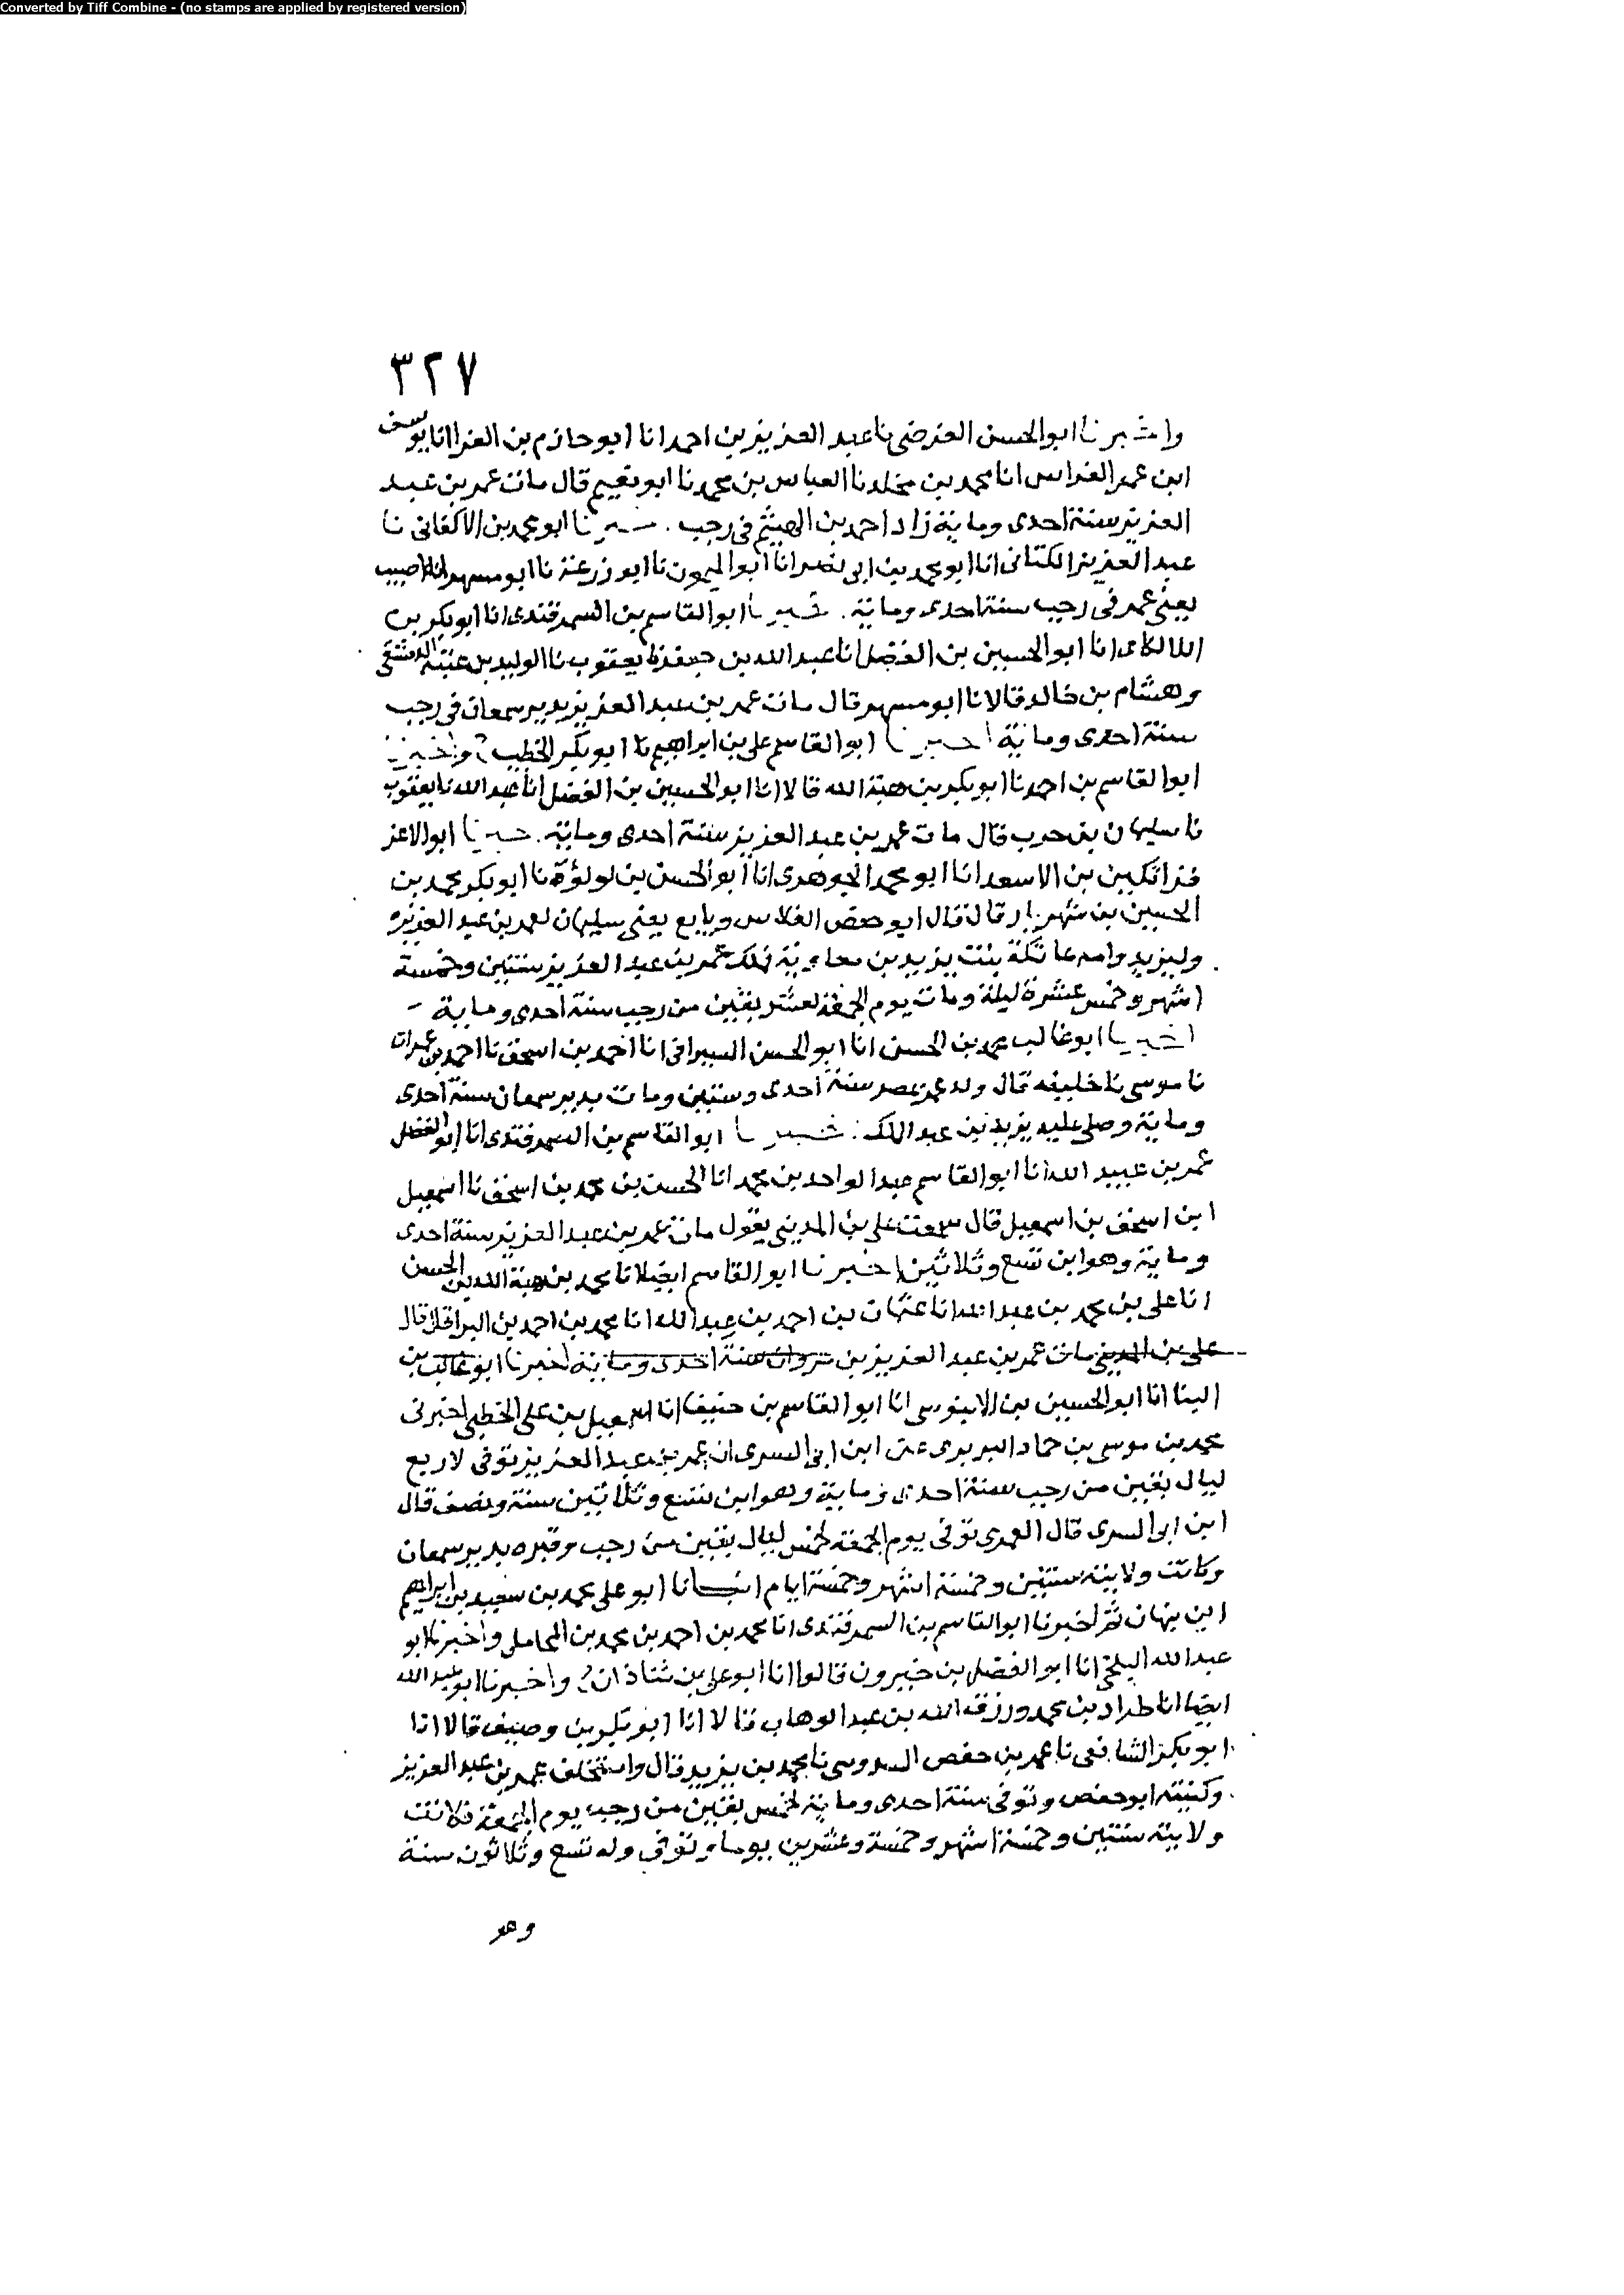 Converted by Tiff Combine - (no stamps are applied by registered version)
٣٢٧
واخبرنا ابوالحسن الفرضى نا عبد العزيز بن احمد انا ابو حازم بن الفرا انا يوسف
ابن عمر القواس انا محمد بن مخلد نا العباس بن محمد نا ابو نعيم قال مات عمر بن عبد
العزيز سنة احدى وماية زاد احمد بن الهيثم فى رجب . خبرنا ابو محمد بن الاكفانى نا
عبد العزيز الكتانى انا ابو محمد بن ابى نصر انا ابو الميمون نا ابو زرعة نا ابو مسهر انه اصيب
يعنى عمر فى رجب سنة احدى وماية . خبرنا ابو القاسم بن السمرقندى انا ابو بكر بن
اللالكاى انا ابو الحسين بن الفضل انا عبد الله بن جعفر نا يعقوب نا الوليد بن عتبة الدمشقى
وهشام بن خالد قالا نا ابو مسهر قال مات عمر بن عبد العزيز بدير سمعان فى رجب
سنة احدى وماية اخبرنا ابو القاسم على بن ابراهيم نا ابو بكر الخطيب ح واخبرنا
ابو القاسم بن احمد نا ابو بكر بن هبة الله قالا انا ابو الحسين بن الفضل انا عبد الله نا يعقوب
نا سليمان بن حرب قال مات عمر بن عبد العزيز سنة احدى وماية . خبرنا ابو الاعز
قراتكين بن الاسعد انا ابو محمد الجوهرى انا ابو الحسن بن لولؤ نا ابو بكر محمد بن
الحسين بن شهريار قال قال ابو حفص الفلاس وبايع يعنى سليمان لعمر بن عبد العزيز
وليزيد وامه عاتكة بنت يزيد بن معاوية فملك عمر بن عبد العزيز سنتين وخمسة
اشهر وخمس عشرة ليلة ومات يوم الجمعة لعشر بقين من رجب سنة احدى وماية
اخبرنا ابو غالب محمد بن الحسن انا ابو الحسن السيرافى انا احمد بن اسحق نا احمد بن عمران
نا موسى نا خليفه قال ولد عمر بمصر سنة احدى وستين ومات بدير سمعان سنة احدى
وماية وصلى عليه يزيد بن عبد الملك . خبرنا ابو القاسم بن السمرقندى انا ابو الفضل
عمر بن عبيد الله انا ابو القاسم عبد الواحد بن محمد انا الحسن بن محمد بن اسحق نا اسمعيل
ابن اسحق بن اسمعيل قال سمعت على بن المدينى يقول مات عمر بن عبد العزيز سنة احدى
وماية وهو ابن تسع وثلاثين اخبرنا ابو القاسم ايضا انا محمد بن هبة الله بن الحسن
انا على بن محمد بن عبد الله انا عثمان بن احمد بن عبد الله انا محمد بن احمد بن البرا قال قال
على بن المدينى مات عمر بن عبد العزيز بن مروان سنة احدى وماية اخبرنا ابو غالب بن
البنا انا ابو الحسين بن الابنوسى انا ابو القاسم بن حنيفا انا اسمعيل بن على الخطبى اخبرنى
محمد بن موسى بن حماد البربرى عن ابن ابى السرى ان عمر بن عبد العزيز توفى لاربع
ليال بقين من رجب سنة احدى وماية وهو ابن تسع وثلاثين سنة ونصف قال
ابن ابى السرى قال العمرى توفى يوم الجمعة لخمس ليال بقين من رجب وقبره بدير سمعان
وكانت ولايته سنتين وخمسة اشهر وخمسة ايام انبانا ابو على محمد بن سعيد بن ابراهيم
ابن نبهان ثم اخبرنا ابو القاسم بن السمرقندى انا محمد بن احمد بن محمد بن المحاملى واخبرنا ابو
عبد الله البلخى انا ابو الفضل بن خيرون قالوا انا ابو على بن شاذان ح واخبرنا ابو عبد الله
ايضا انا طراد بن محمد ورزق الله بن عبد الوهاب قالا انا ابو بكر بن وصيف قالا انا
ابو بكر الشافعى نا عمر بن حفص السدوسى نا محمد بن يزيد قال واستخلف عمر بن عبد العزيز
وكنيته ابو حفص وتوفى سنة احدى وماية لخمس بقين من رجب يوم الجمعة فكانت
ولايته سنتين وخمسة اشهر وخمسة وعشرين يوما وتوفى وله تسع وثلاثون سنة
وهو